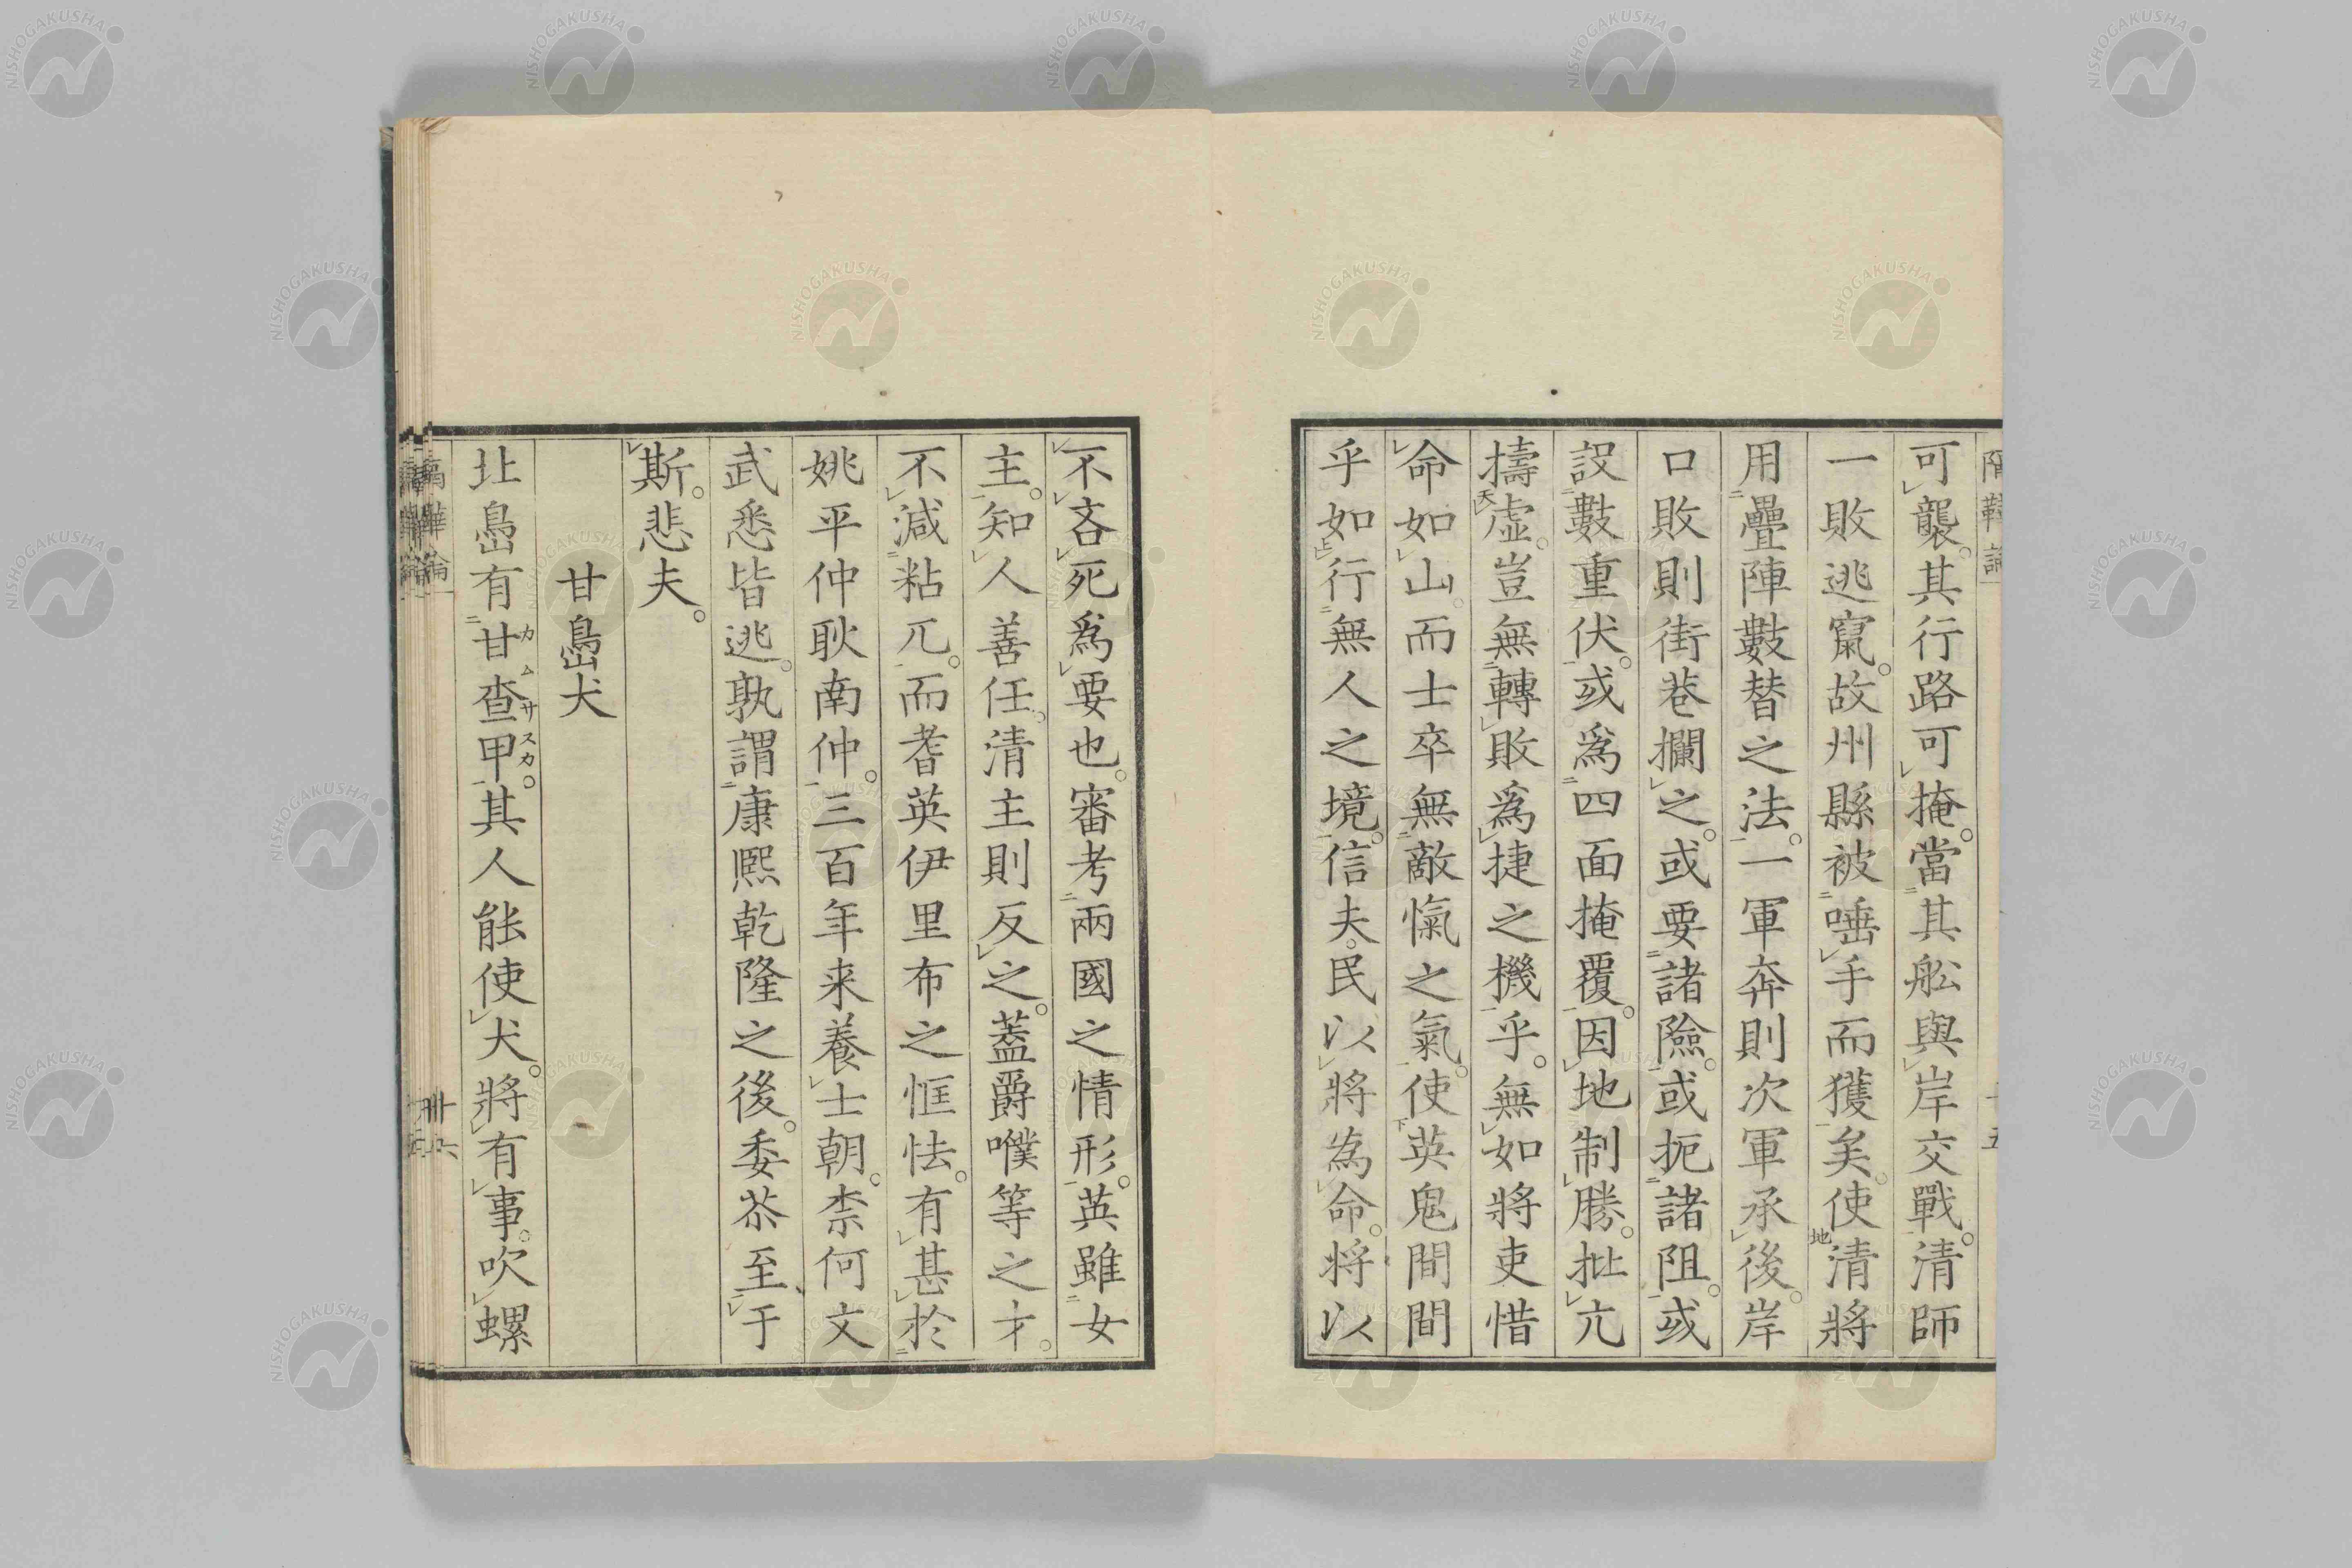 可襲。其行路可掩。當其舩與岸交戰。清師
一敗逃竄。故州縣被唾手而獲矣。使清將
用疊陣數替之法。一軍奔則次軍承後。岸
口敗則街巷攔之。或要諸險。或扼諸阻。或
設數重伏。或爲四面掩覆。因地制勝。批亢
擣虛。豈無轉敗爲捷之機乎。無如將吏惜
命如山。而士卒無敵愾之氣。使英鬼間間
乎如行無人之境。信夫。民以將為命。將以
不吝死爲要也。審考兩國之情形。英雖女
主。知人善任。清主則反之。蓋爵噗等之才。
不減粘兀。而耆英伊里布之恇怯。有甚於
姚平仲耿南仲。三百年来養士朝。柰何文
武悉皆逃。孰謂康熙乾隆之後。委苶至于
斯。悲夫。
甘嶌犬
北嶌有甘查甲。其人能使犬。將有事。吹螺
カムサスカ
NISHOGAKUSHA